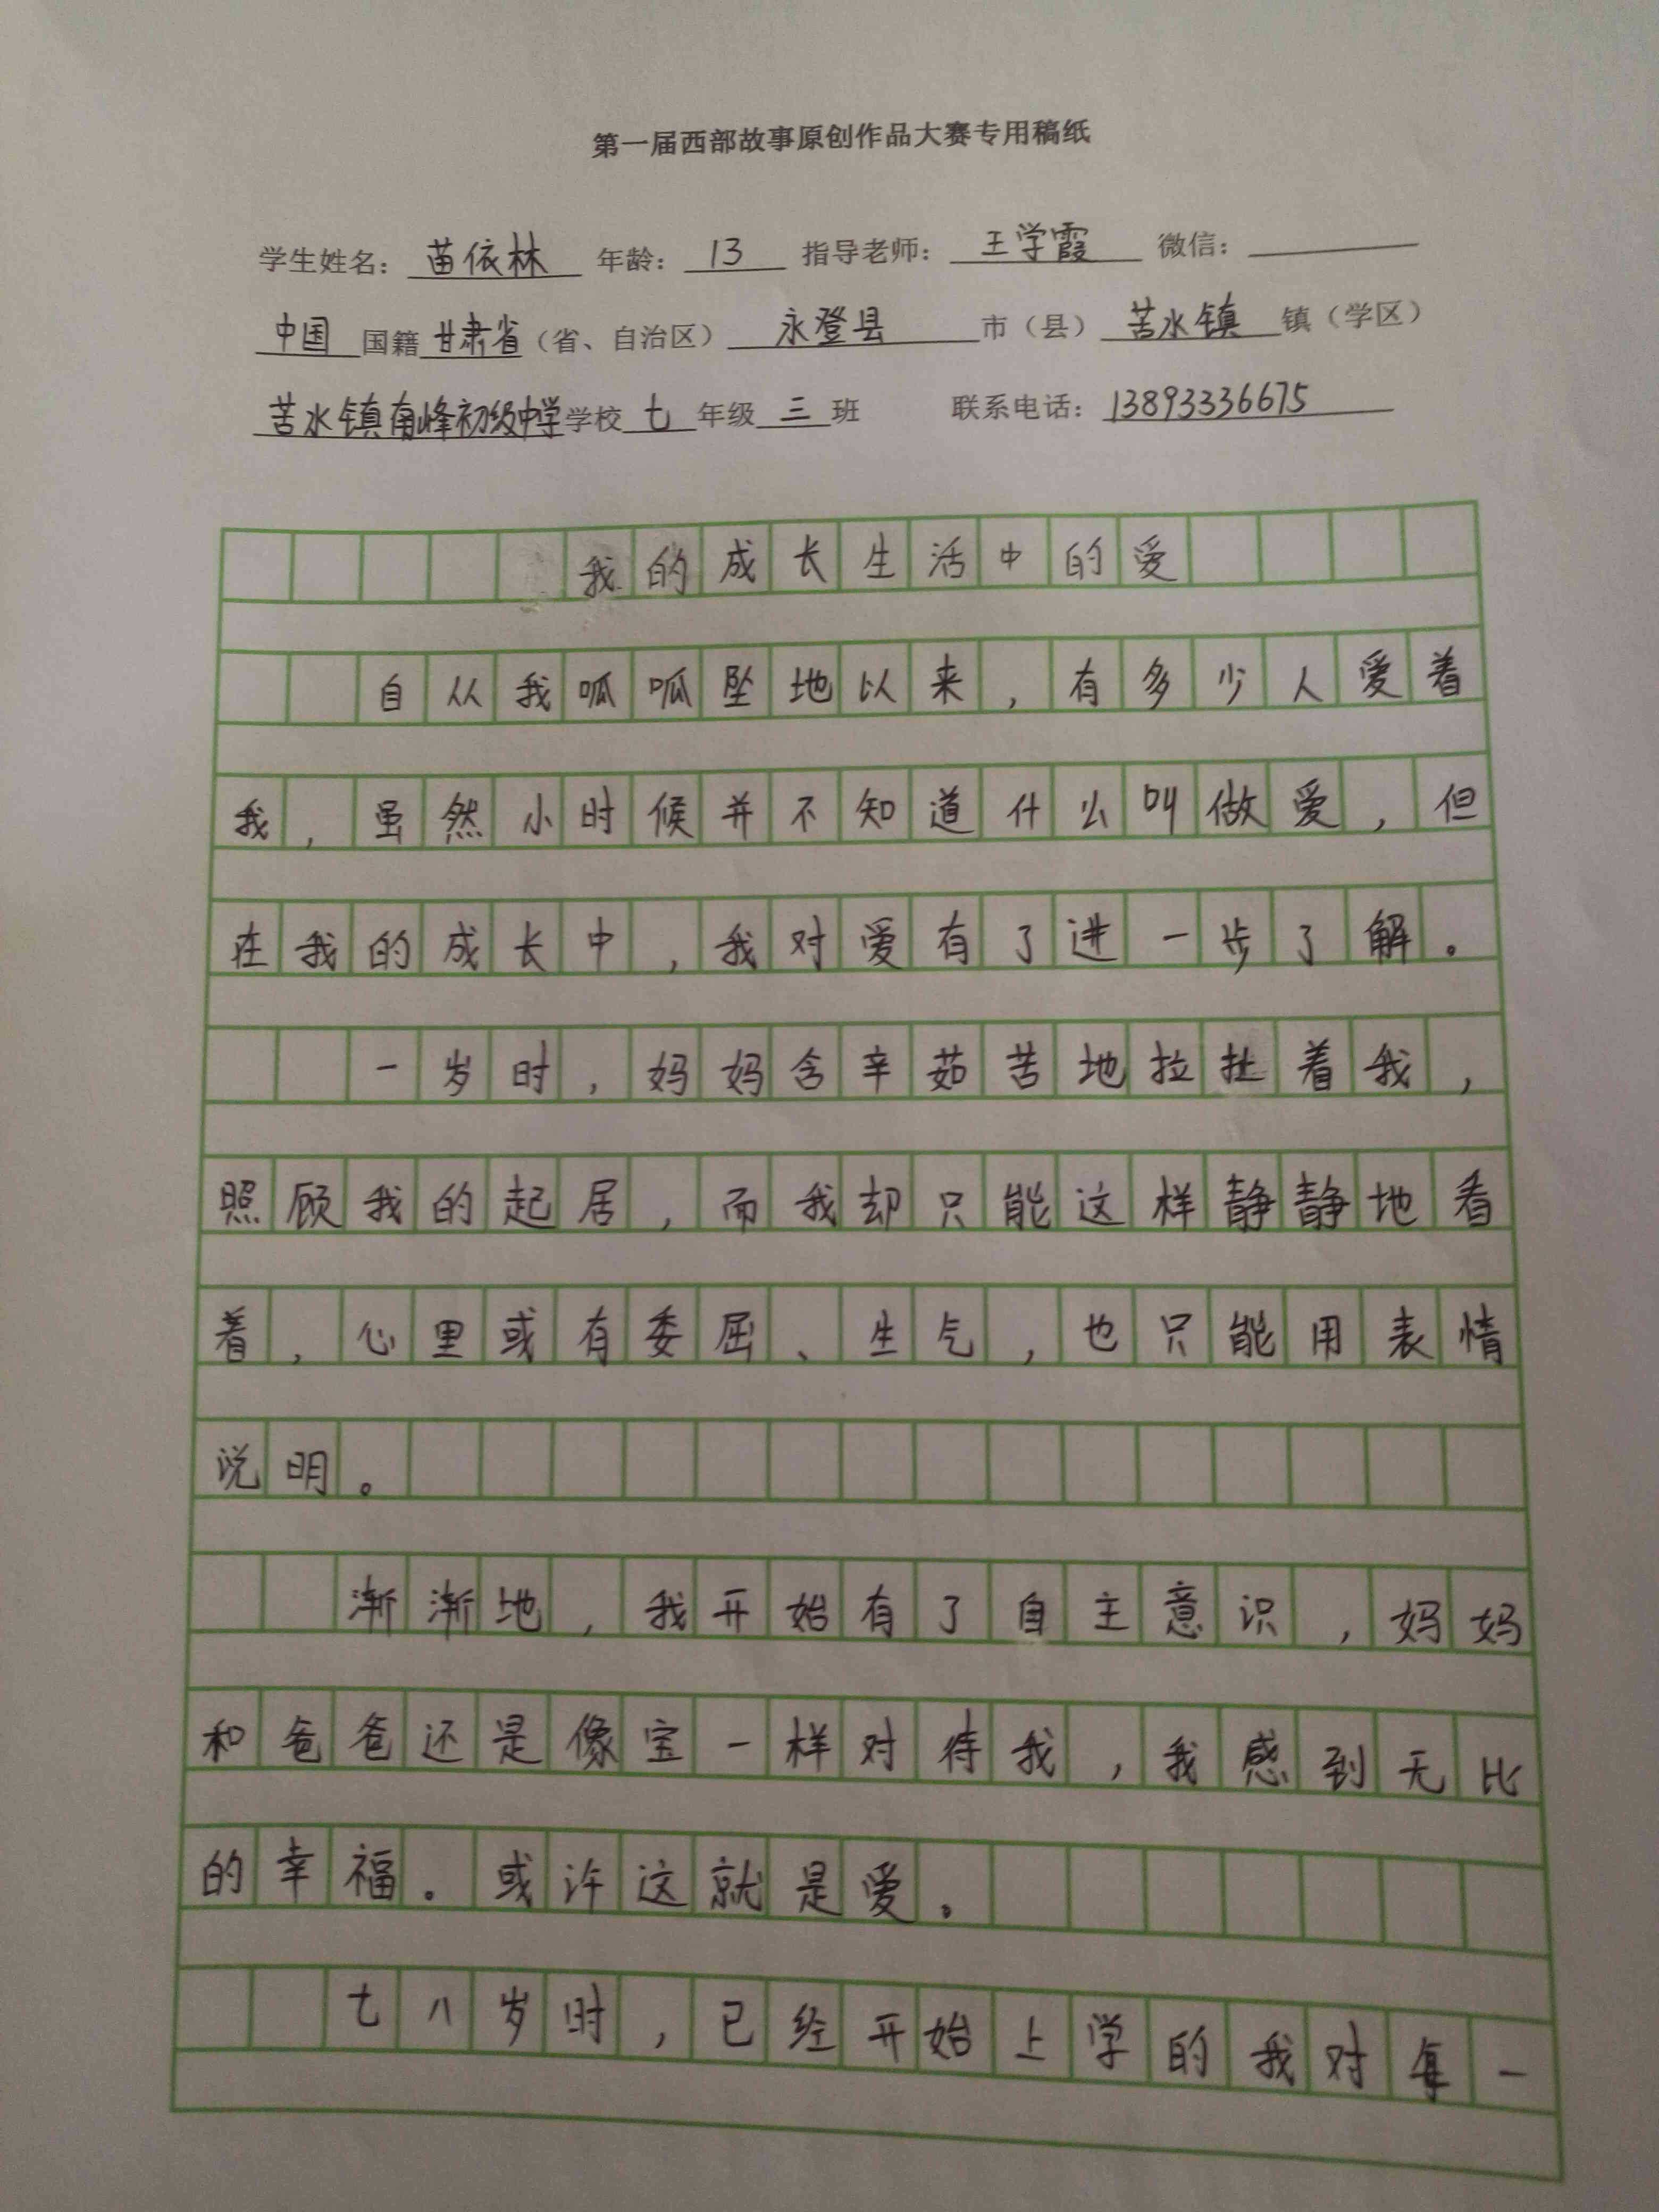 第一届西部故事原创作品大赛专用稿纸
学生姓名：苗依林 年龄：13 指导老师：王学霞 微信：
中国国籍甘肃省（省、自治区）永登县市（县）苦水镇镇（学区）
苦水镇南峰初级中学学校七年级三班 联系电话：13893336675
我的成长生活中的爱
自从我呱呱坠地以来，有多少人爱着
我，虽然小时候并不知道什么叫做爱，但
在我的成长中，我对爱有了进一步了解。
一岁时，妈妈含辛茹苦地拉扯着我，
照顾我的起居，而我却只能这样静静地看
着，心里或有委屈、生气，也只能用表情
说明。
渐渐地，我开始有了自主意识，妈妈
和爸爸还是像宝一样对待我，我感到无比
的幸福。或许这就是爱。
七八岁时，已经开始上学的我对每一